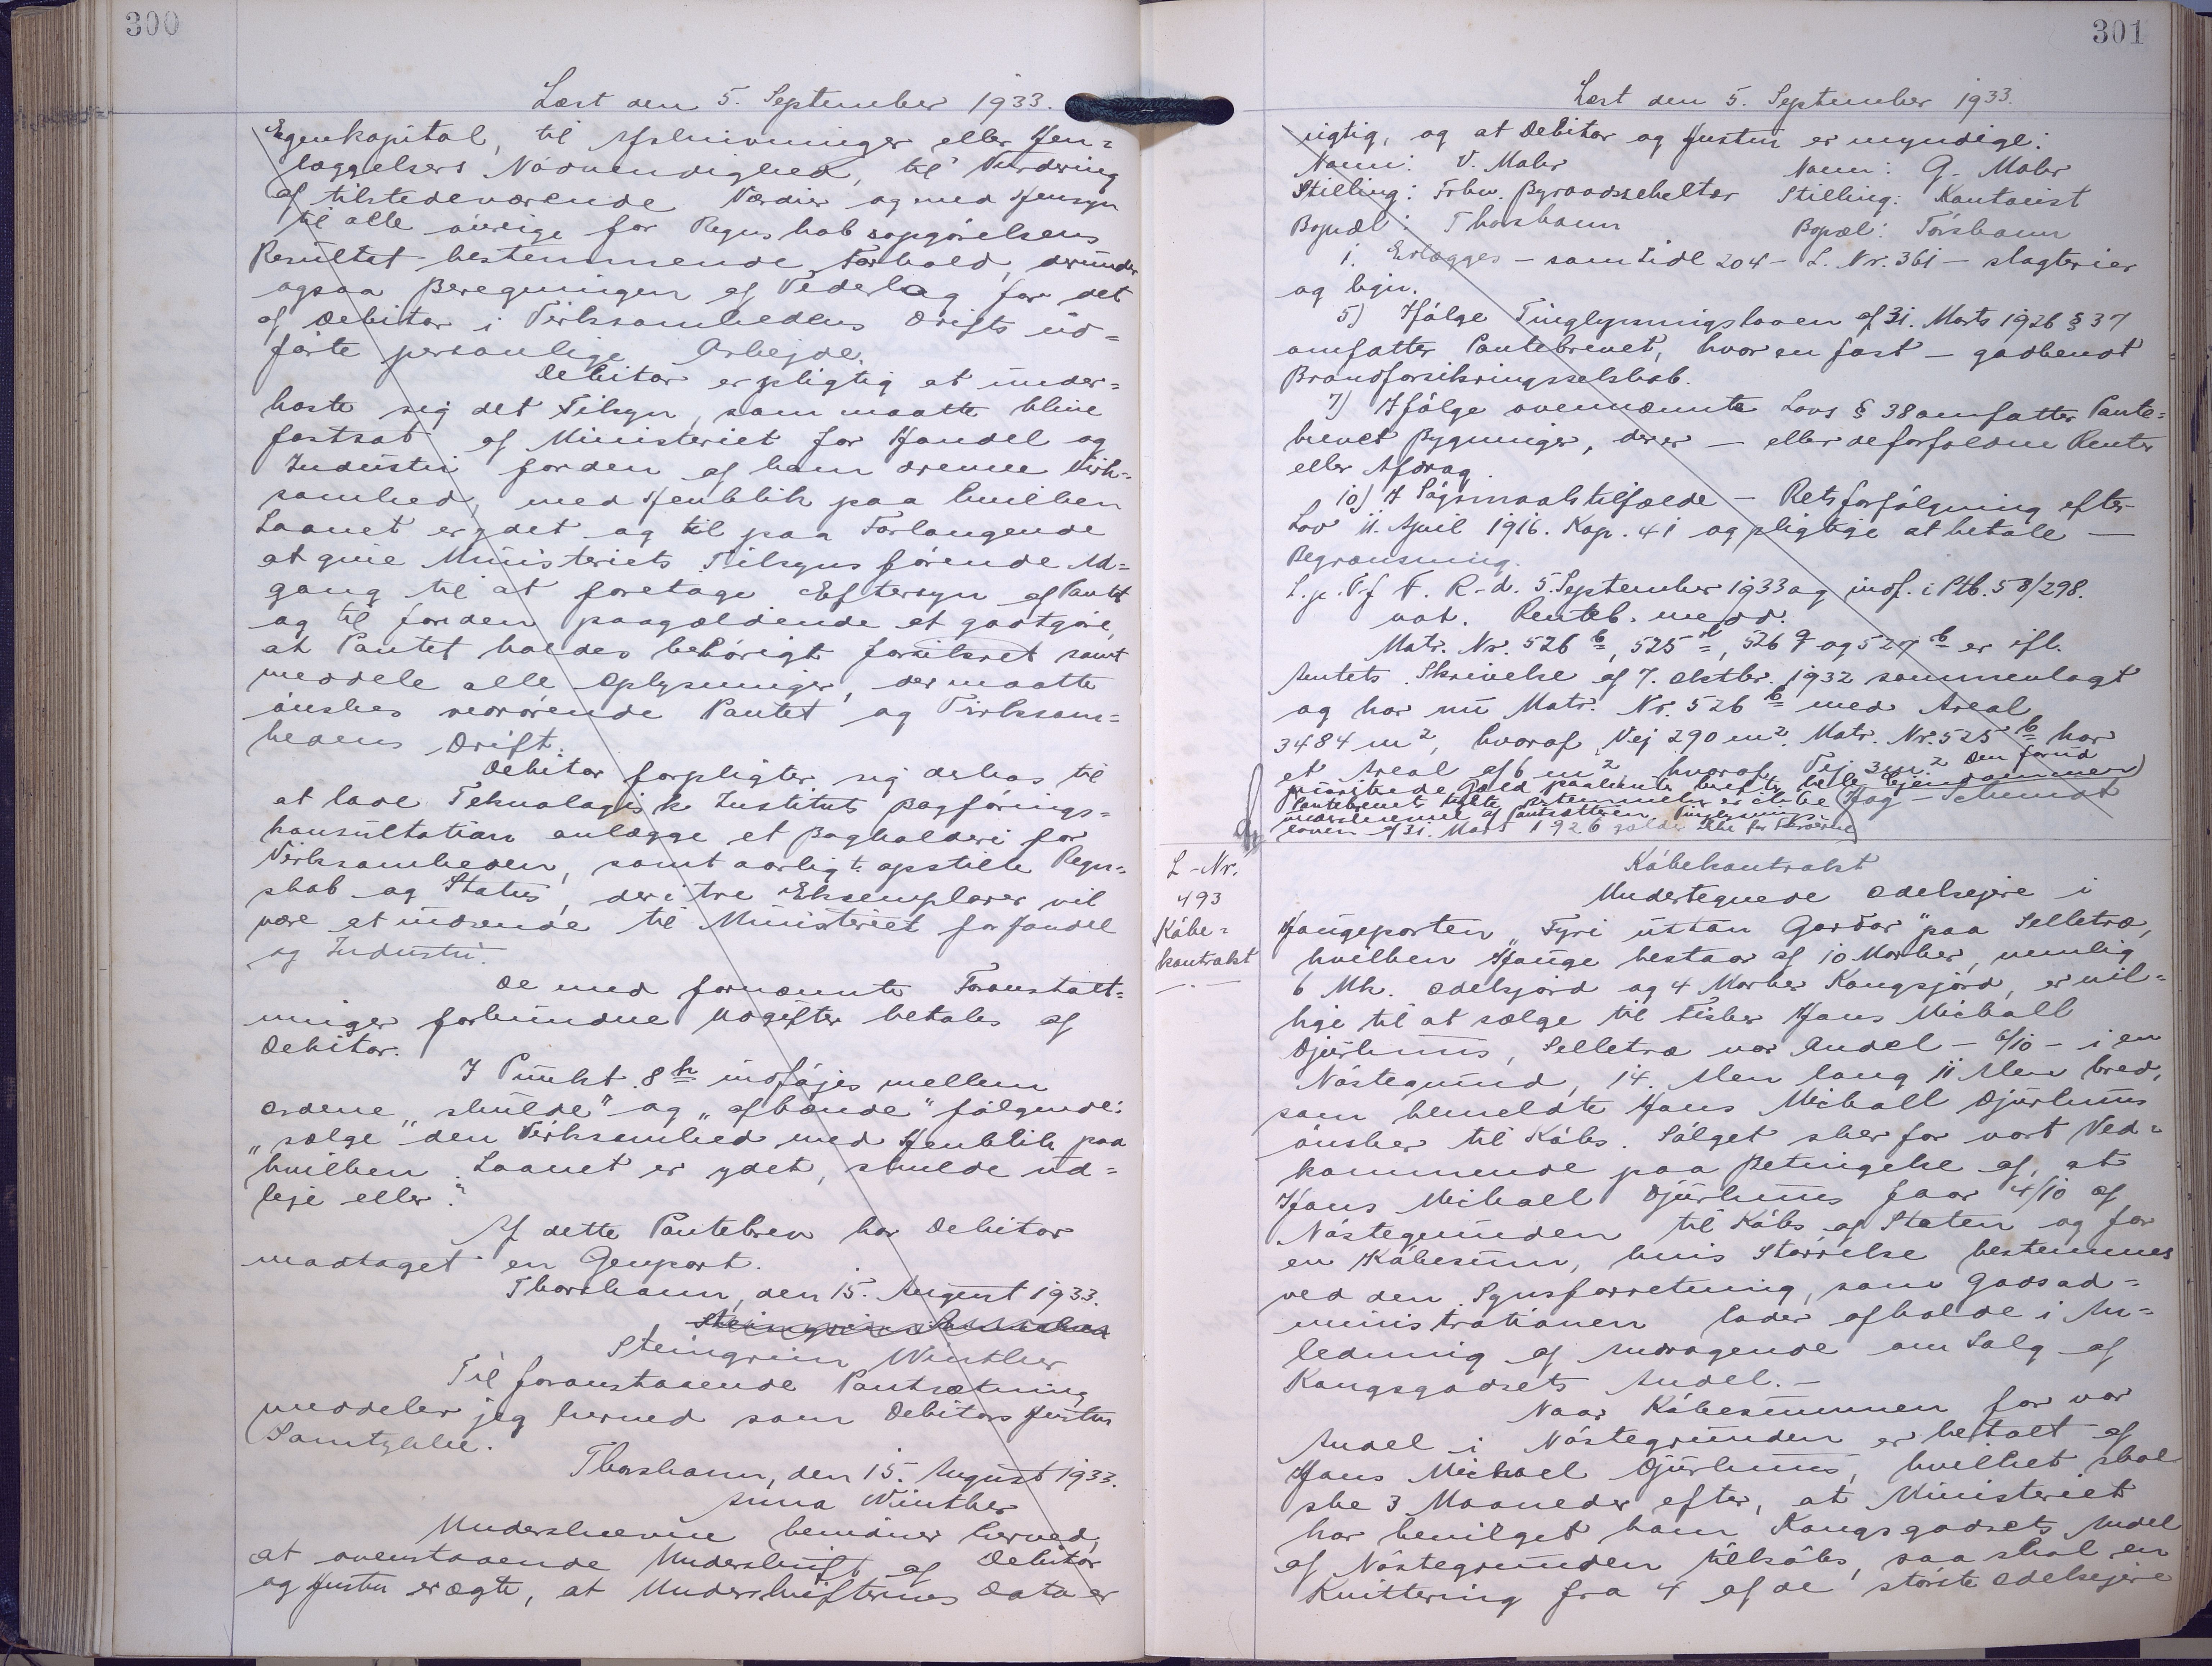 300
Læst den 5. September 1933.
Egenkapital, til Afskrivninger eller Hen=
læggelsers Nødvendighed, til Vurdering
af tilstedeværende Værdier og med Hensyn
til alle øvrige for Regnskabsopgørelsens
Resultat bestemmende Forhold, derunder
ogsaa Beregningen af Vederlag for det
af Debitor i Virksomhedens Drift ud=
førte personlige Arbejde.
Debitor er pligtig at under=
kaste sig det Tilsyn, som maatte blive
fastsat af Ministeriet for Handel og
Industri for den af ham drevne Virk=
somhed, med Henblik paa hvilken
Laanet er ydet og til paa Forlangende
at give Ministeriets Tilsynsførende Ad=
gang til at foretage Eftersyn af Pantet
og til for den paagældende at godtgøre,
at Pantet holdes behørigt forsikret samt
meddele alle Oplysninger, der maatte
ønskes vedrørende Pantet og Virksom=
hedens Drift.
Debitor forpligter sig derhos til
at lade Teknologisk Instituts Bogførings=
konsultation anlægge et Bogholderi for
Virksomheden, samt aarligt opstille Regn=
skab og Status, der i tre Eksemplarer vil
være at indsende til Ministeriet for Handel
og Industri.
De med fornævnte Foranstalt=
ninger forbundne Udgifter betales af
Debitor.
I Punkt 8 h indføjes mellem
Ordene „skulde" og „afhænde" følgende:
„sælge" den Virksomhed med Henblik paa
hvilken Laanet er ydet, skulde ud=
leje eller."
Af dette Pantebrev har Debitor
modtaget en Genpart.
Thorshavn, den 15. August 1933.
Steingrim Winther
Til foranstaaende Pantsætning
meddeler jeg herved som Debitors Hustru
Samtykke.
Thorshavn, den 15. August 1933.
Anna Winther
Underskrevne bevidner herved,
at ovenstaaende Underskrift af Debitor
og Hustru er ægte, at Underskrifternes Data er
301
Læst den 5. September 1933.
rigtig, og at Debitor og Hustru er myndige:
Navn: V. Mohr Navn: G. Mohr
Stilling: Frhv. Byraadssekretær Stilling: Kontorist
Bopæl: Thorshavn Bopæl: Tórshavn
1. Erlægges – som Sidl 204 – L. Nr. 361 – slagterier
og lign.
5) Ifølge Tinglysningsloven af 31. Marts 1926 § 37
omfatter Pantebrevet, hvor en fast – godkendt
Brandforsikringsselskab.
7) Ifølge ovennævnte Lovs § 38 omfatter Pante=
brevet Bygninger, der er – eller de forfaldne Renter
eller Afdrag.
10) I Søgsmaalstilfælde – Retsforfølgning efter
Lov 11. April 1916. Kap. 41 og pligtige at betale –
Begrænsning.
L. p. T. f. F. R–d. 5. September 1933 og indf. i Ptb. 5 8/298.
Matr. Nr. 526 b, 525 , 526 g og 527 b er ifl.
Amtets Skrivelse af 7. Oktbr. 1932 sammenlagt
og har nu Matr. Nr. 526 b med Areal
3484 m², hvoraf Vej 290 m². Matr. Nr. 525 b har
et Areal af 6 m² hvoraf Vej 3 m². Den forud
prioriterede Gæld paahviler hele Ejendommen
Tinglysnings=
loven af 31. Marts 1926 gælder ikke for Færøerne
L–Nr.
493
Købe=
kontrakt
Købekontrakt
Undertegnede Odelsejere i
Haugeparten „Fyri uttan Gardar" paa Selletræ,
hvilken Hauge bestaar af 10 Marker, nemlig
6 Mk. Odelsjord og 4 Marker Kongsjord, er vil=
lige til at sælge til Fisker Hans Mikall
Djurhuus, Selletræ vor Andel – 6/10 – i en
Nøstegrund, 14. Alen lang 11 Alen bred,
som bemeldte Hans Mikall Djurhuus
ønsker til Købs. Sálget sker for vort Ved=
kommende paa Betingelse af, at
Hans Mikall Djurhuus faar 4/10 af
Nøstegrunden til Købs af Staten og for
en Købesum, hvis Størrelse bestemmes
ved den Synsforretning, som Godsad=
ministrationen lader afholde i An=
ledning af Andragende om Salg af
Kongsgodsets Andel.–
Naar Købesummen for vor
Andel i Nøstegrunden er betalt af
Hans Michael Djurhuus, hvilket skal
ske 3 Maaneder efter, at Ministeriet
har bevilget ham Kongsgodsets Andel
af Nøstegrunden tilkøbs, saa skal en
Kvittering fra 4 af de største Odelsejere